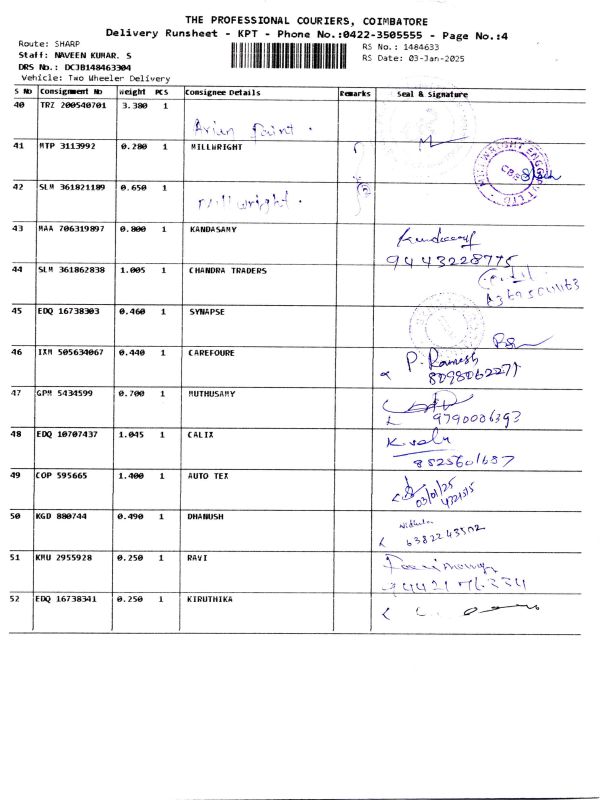 THE PROFESSIONAL COURIERS, COIMBATORE
Delivery Runsheet - KPT - Phone No.:0422-3505555 - Page No.:4
Route: SHARP
RS No.: 1484633
Staff: NAVEEN KUMAR. S
RS Date: 03-Jan-2025
DRS No.: DCJB148463304
Vehicle: Two Wheeler Delivery
S No Consignment No Weight PCS Consignee Details Remarks Seal & Signature
40 TRZ 200540701 3.380 1
Asian Paint.
41 MTP 3113992 0.280 1 MILLWRIGHT
CBE
42 SLM 361821189 0.650 1
Millwright.
43 MAA 706319897 0.800 1 KANDASAMY
9443228775
44 SLM 361862838 1.005 1 CHANDRA TRADERS
45 EDQ 16738303 0.460 1 SYNAPSE
46 IXM 505634067 0.440 1 CAREFOURE
P. Ramesh
8098062271
47 GPM 5434599 0.700 1 MUTHUSAMY
9790006393
48 EDQ 10707437 1.045 1 CALIX
K. velu
8525601687
49 COP 595665 1.400 1 AUTO TEX
03/01/25
50 KGD 880744 0.490 1 DHANUSH
51 KMU 2955928 0.250 1 RAVI
52 EDQ 16738341 0.250 1 KIRUTHIKA